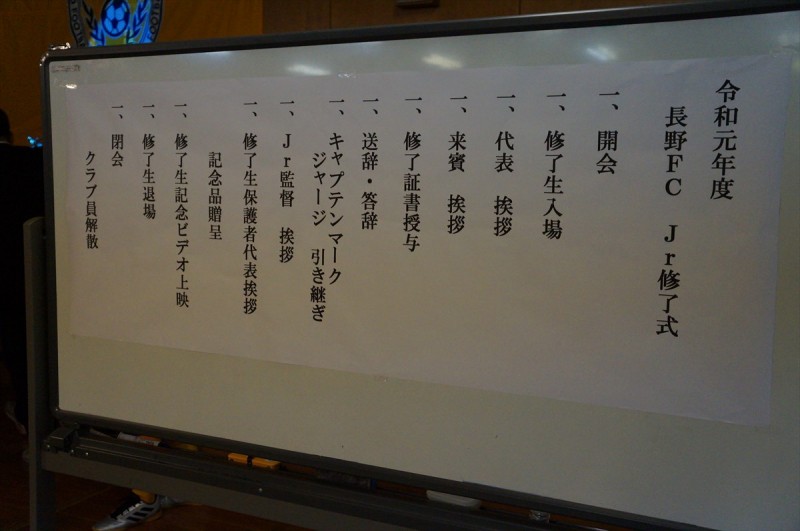 令和元年度
長野FC Jr修了式
一、開会
一、修了生入場
一、代表 挨拶
一、来賓 挨拶
一、修了証書授与
一、送辞・答辞
一、キャプテンマーク
ジャージ 引き継ぎ
一、Jr監督 挨拶
一、修了生保護者代表挨拶
記念品贈呈
一、修了生記念ビデオ上映
一、修了生退場
一、閉会
クラブ員解散